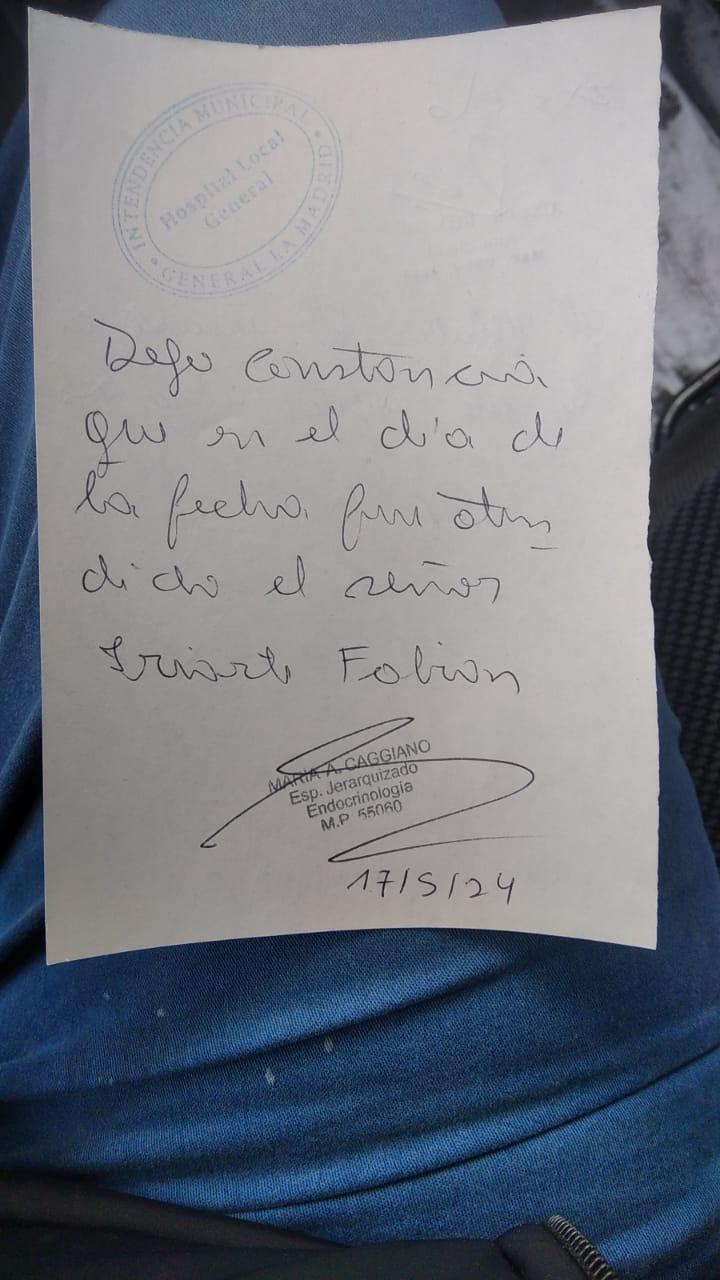 INTENDENCIA MUNICIPAL
Hospital Local
General
GENERAL LA MADRID
Dejo constancia
que en el día de
la fecha fue aten
dido el señor
Iriarte Fabian
MARIA A. CAGGIANO
Esp. Jerarquizado
Endocrinología
M.P. 55060
17/5/24